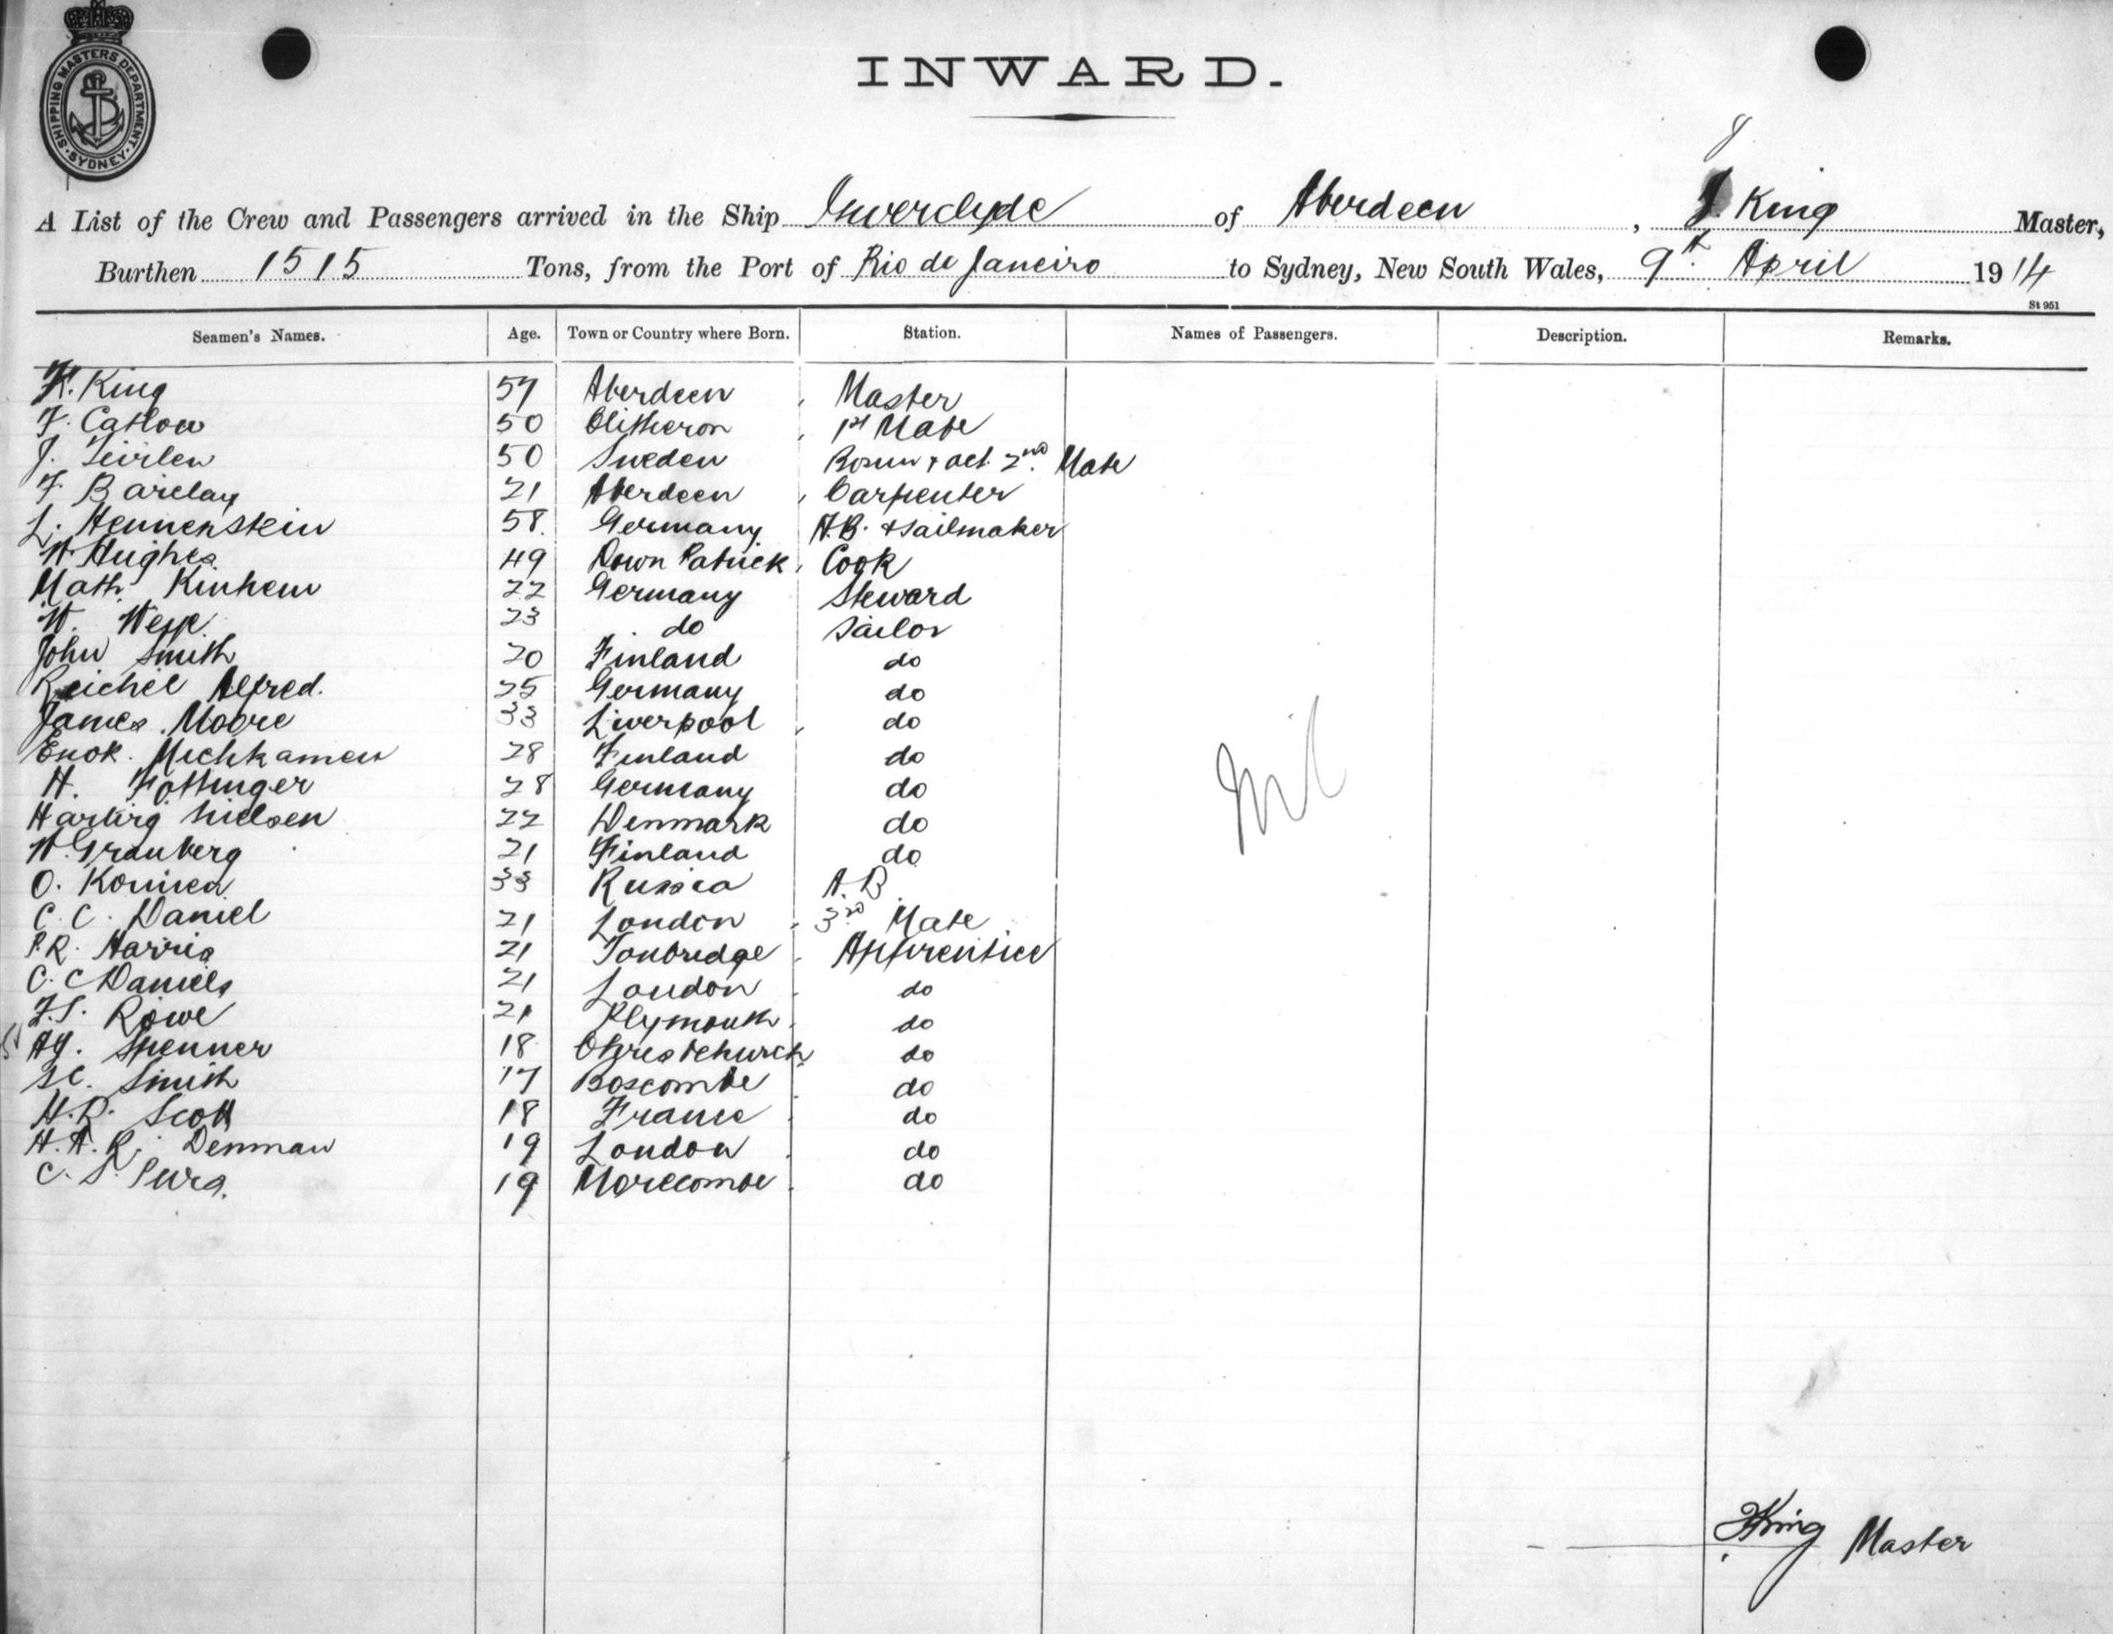 SHIPPING MASTERS DEPARTMENT
SYDNEY
INWARD.
A List of the Crew and Passengers arrived in the Ship Inverclyde of Aberdeen, J. King Master,
Burthen 1515 Tons, from the Port of Rio de Janeiro to Sydney, New South Wales, 9th April 1914
St 951
Seamen's Names. Age. Town or Country where Born. Station. Names of Passengers. Description. Remarks.
King 57 Aberdeen Master
F. Catlow 50 Clitheron 1st Mate
J. 50 Sweden Bosun + act. 2nd Mate
F. Barclay 21 Aberdeen Carpenter
L. Hennenstein 58 Germany A.B. + Sailmaker
W Hughes. 49 Down Patrick Cook
Math. 22 Germany Steward
W. 23 do Sailor
John Smith 20 Finland do
Reichel Alfred. 25 Germany do
James Moore 33 Liverpool do
Enok. Michkamen 28 Finland do
H. Fottinger 28 Germany do
Hartvig Nielsen 22 Denmark do
W. Granberg 21 Finland do
O. 33 Russia A.B.
C. C. Daniel 21 London 3rd Mate
P.R. Harris 21 Tonbridge Apprentice
C. C Daniels 21 London do
F.S. Rowe 21 Plymouth do
Spenner 18 Christchurch do
Smith 17 Boscombe do
H.R. Scott 18 France do
H.A.R. Denman 19 London do
C. S. 19 Morecombe do
Nil
King Master